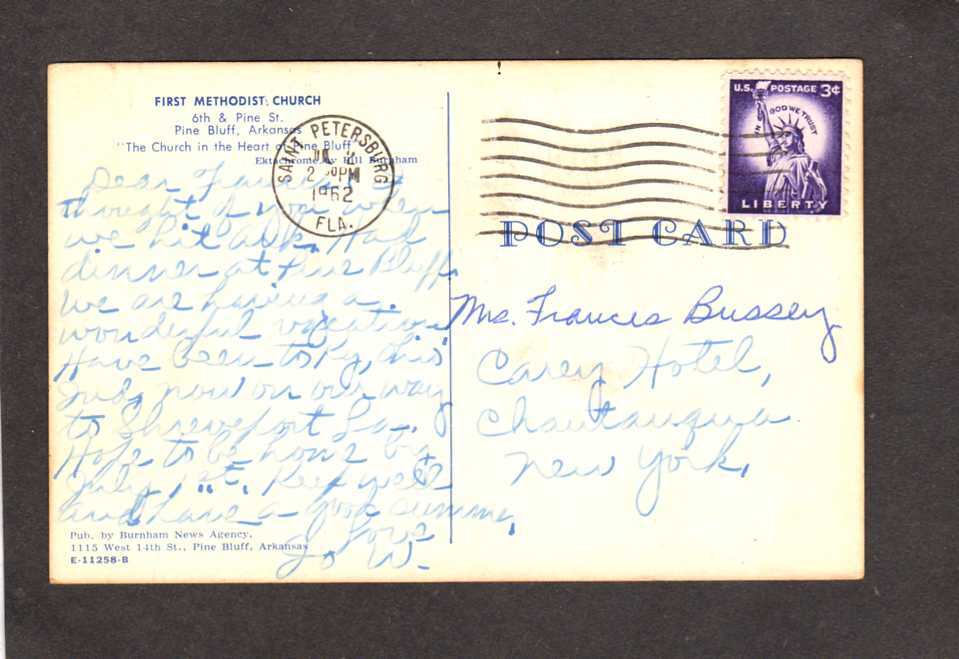 FIRST METHODIST CHURCH
6th & Pine St.
Pine Bluff, Arkansas
"The Church in the Heart of Pine Bluff"
Ektachrome by Bill Burnham
SAINT PETERSBURG
2 PM
1962
FLA.
U.S. POSTAGE 3¢
IN GOD WE TRUST
LIBERTY
POST CARD
Dear
thought of you when
we hit Ark. Had
dinner at Pine Bluff
we are having a
wonderful vacation
Have been to Ky, Ills
Ind, now on our way
to Shreveport La.
Hope to be home by
July 1st. Keep well
and have a good summer,
Love
Jo W.
Mrs. Frances Bussey
Carey Hotel,
Chautauqua
New York,
Pub. by Burnham News Agency,
1115 West 14th St., Pine Bluff, Arkansas
E-11258-B